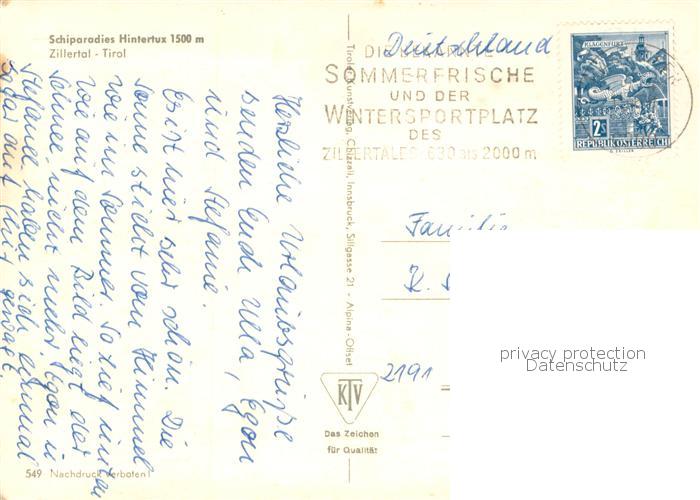 Schiparadies Hintertux 1500 m
Zillertal - Tirol
Herzliche Urlaubsgrüße
senden Euch Ulla, Egon
und Stefanie.
Es ist hier sehr schön. Die
Sonne sticht vom Himmel
wie im Sommer. So tief unten
wie auf dem Bild liegt der
Schnee nicht mehr. Egon u.
Stefanie haben sich einmal
sogar auf Schier gewagt.
549 Nachdruck verboten!
Tiroler Kunstverlag Chizzali, Innsbruck, Sillgasse 21 - Alpina-Offset
Deutschland
DIE BEKANNTE
SOMMERFRISCHE
UND DER
WINTERSPORTPLATZ
DES
ZILLERTALES 630 BIS 2000 m
KLAGENFURT
2S
REPUBLIK ÖSTERREICH
Familie
2191
KTV
Das Zeichen
für Qualität
privacy protection
Datenschutz